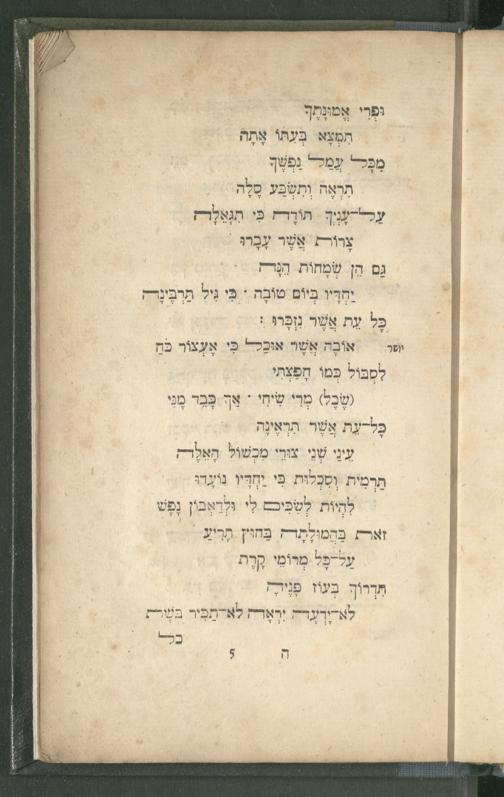 וּפְרִי אֱמוּנָתֶךָ
תִּמְצָא בְּעִתּוֹ אָתָּה
מִכָּל עֲמַל נַפְשֶׁךָ
תִרְאֶה וְתִשְׂבַּע סֶלָה
עַל־עָנְיֵךְ תּוֹדָה כִּי תִגָּאֵלָה
צָרוֹת אֲשֶׁר עָבָרוּ
גַּם הֵן שְׂמָחוֹת הֵנָּה
יַחְדָּיו בְּיוֹם טוֹבָה · כִּי גִיל תַּרְבֶּינָה
כָּל עֵת אֲשֶׁר נִזְכָּרוּ :
יושר אוֹבָה אֲשֶׁר אוּכַל כִּי אֶעְצוֹר כֹּחַ
לִסְבּוֹל כְּמוֹ חָפַצְתִּי
(שֶׂכֶל) מְרִי שִׂיחִי · אַךְ כָּבֵד מֶנִּי
כָּל־עֵת אֲשֶׁר תִּרְאֶינָה
עֵינַי שְׁנֵי צוּרֵי מִכְשׁוֹל הָאֵלֶּה
תַּרְמִית וְסִכְלוּת כִּי יַחְדָּיו נוֹעָדוּ
לִהְיוֹת לְשִׂכִּים לִי וּלְדַאֲבוֹן נָפֶשׁ
זֹאת בַּהֲמוּלָתָהּ בַּחוּץ תָּרִיעַ
עַל־כָּל מְרוֹמֵי קָרֶת
תִּדְרוֹךְ בְּעוֹז פָּנֶיהָ
לֹא־יָדְעָה יִרְאָה לֹא־תַכִּיר בּשֶׁת
כל
ה 5